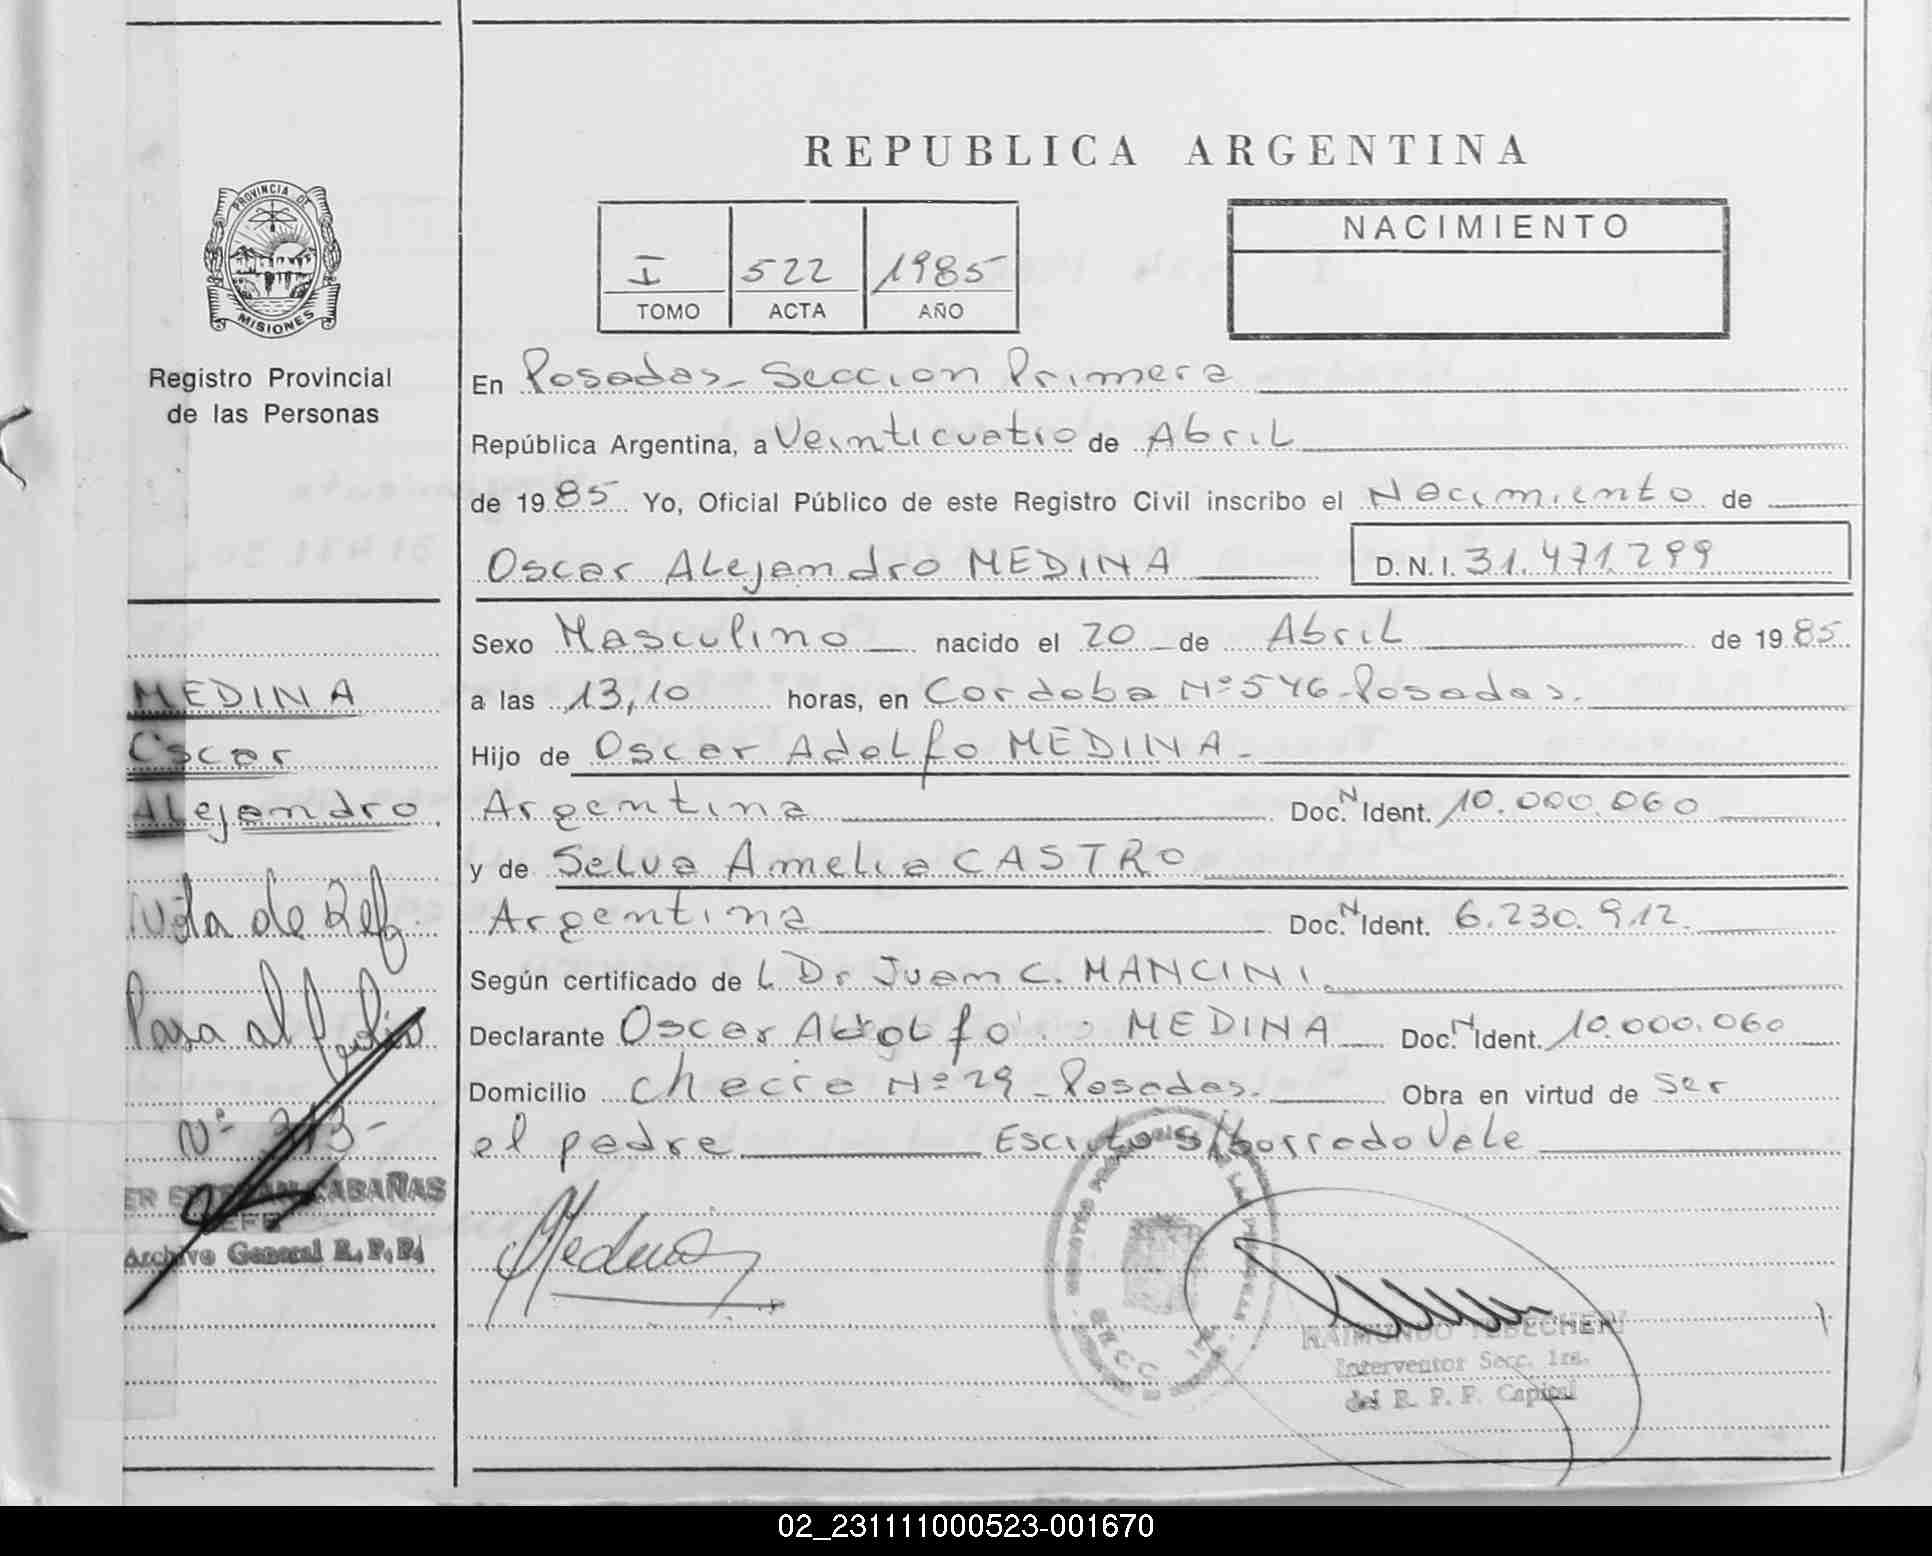 REPUBLICA ARGENTINA
PROVINCIA DE
MISIONES
Registro Provincial
de las Personas
I 522 1985
TOMO ACTA AÑO
NACIMIENTO
En Posadas - Seccion Primera
República Argentina, a Veinticuatro de Abril
de 1985 Yo, Oficial Público de este Registro Civil inscribo el Nacimiento de
Oscar Alejandro MEDINA D.N.I. 31.471.299
Sexo Masculino nacido el 20 de Abril de 1985
a las 13,10 horas, en Cordoba Nº 546 - Posadas.
Hijo de Oscar Adolfo MEDINA -
Argentina Doc. N Ident. 10.000.060
y de Selva Amelia CASTRO
Argentina Doc. N Ident. 6.230.912.
Según certificado de L Dr Juan C. MANCINI.
Declarante Oscar Adolfo MEDINA Doc. N Ident. 10.000.060
Domicilio Nº 29 - Posadas. Obra en virtud de ser
el padre Escrito S/borrado Vale
MEDINA
Oscar
Alejandro
Nota de Ref.
Pasa al folio
Nº 313-
CABAÑAS
JEFE
Archivo General R.P.P.
Medina
SECC
RAIMUNDO
Interventor Secc. 1ra.
del R. P. P. Capital
02_231111000523-001670